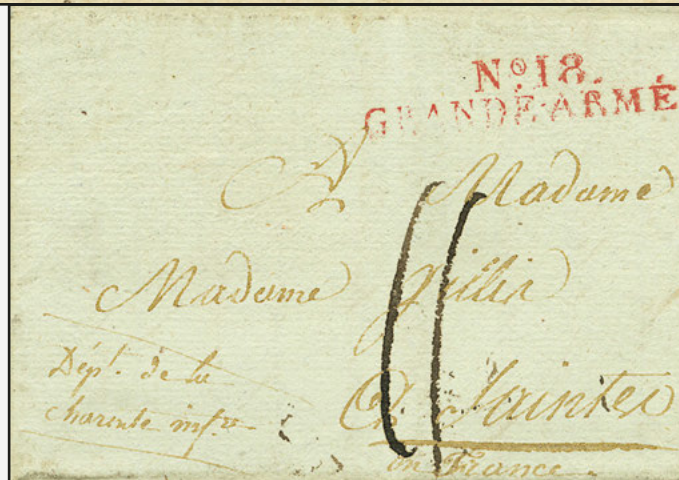 Nº 18.
GRANDE-ARMÉE
A Madame
Madame
Dépt. de la
charente infre
A Saintes
en France